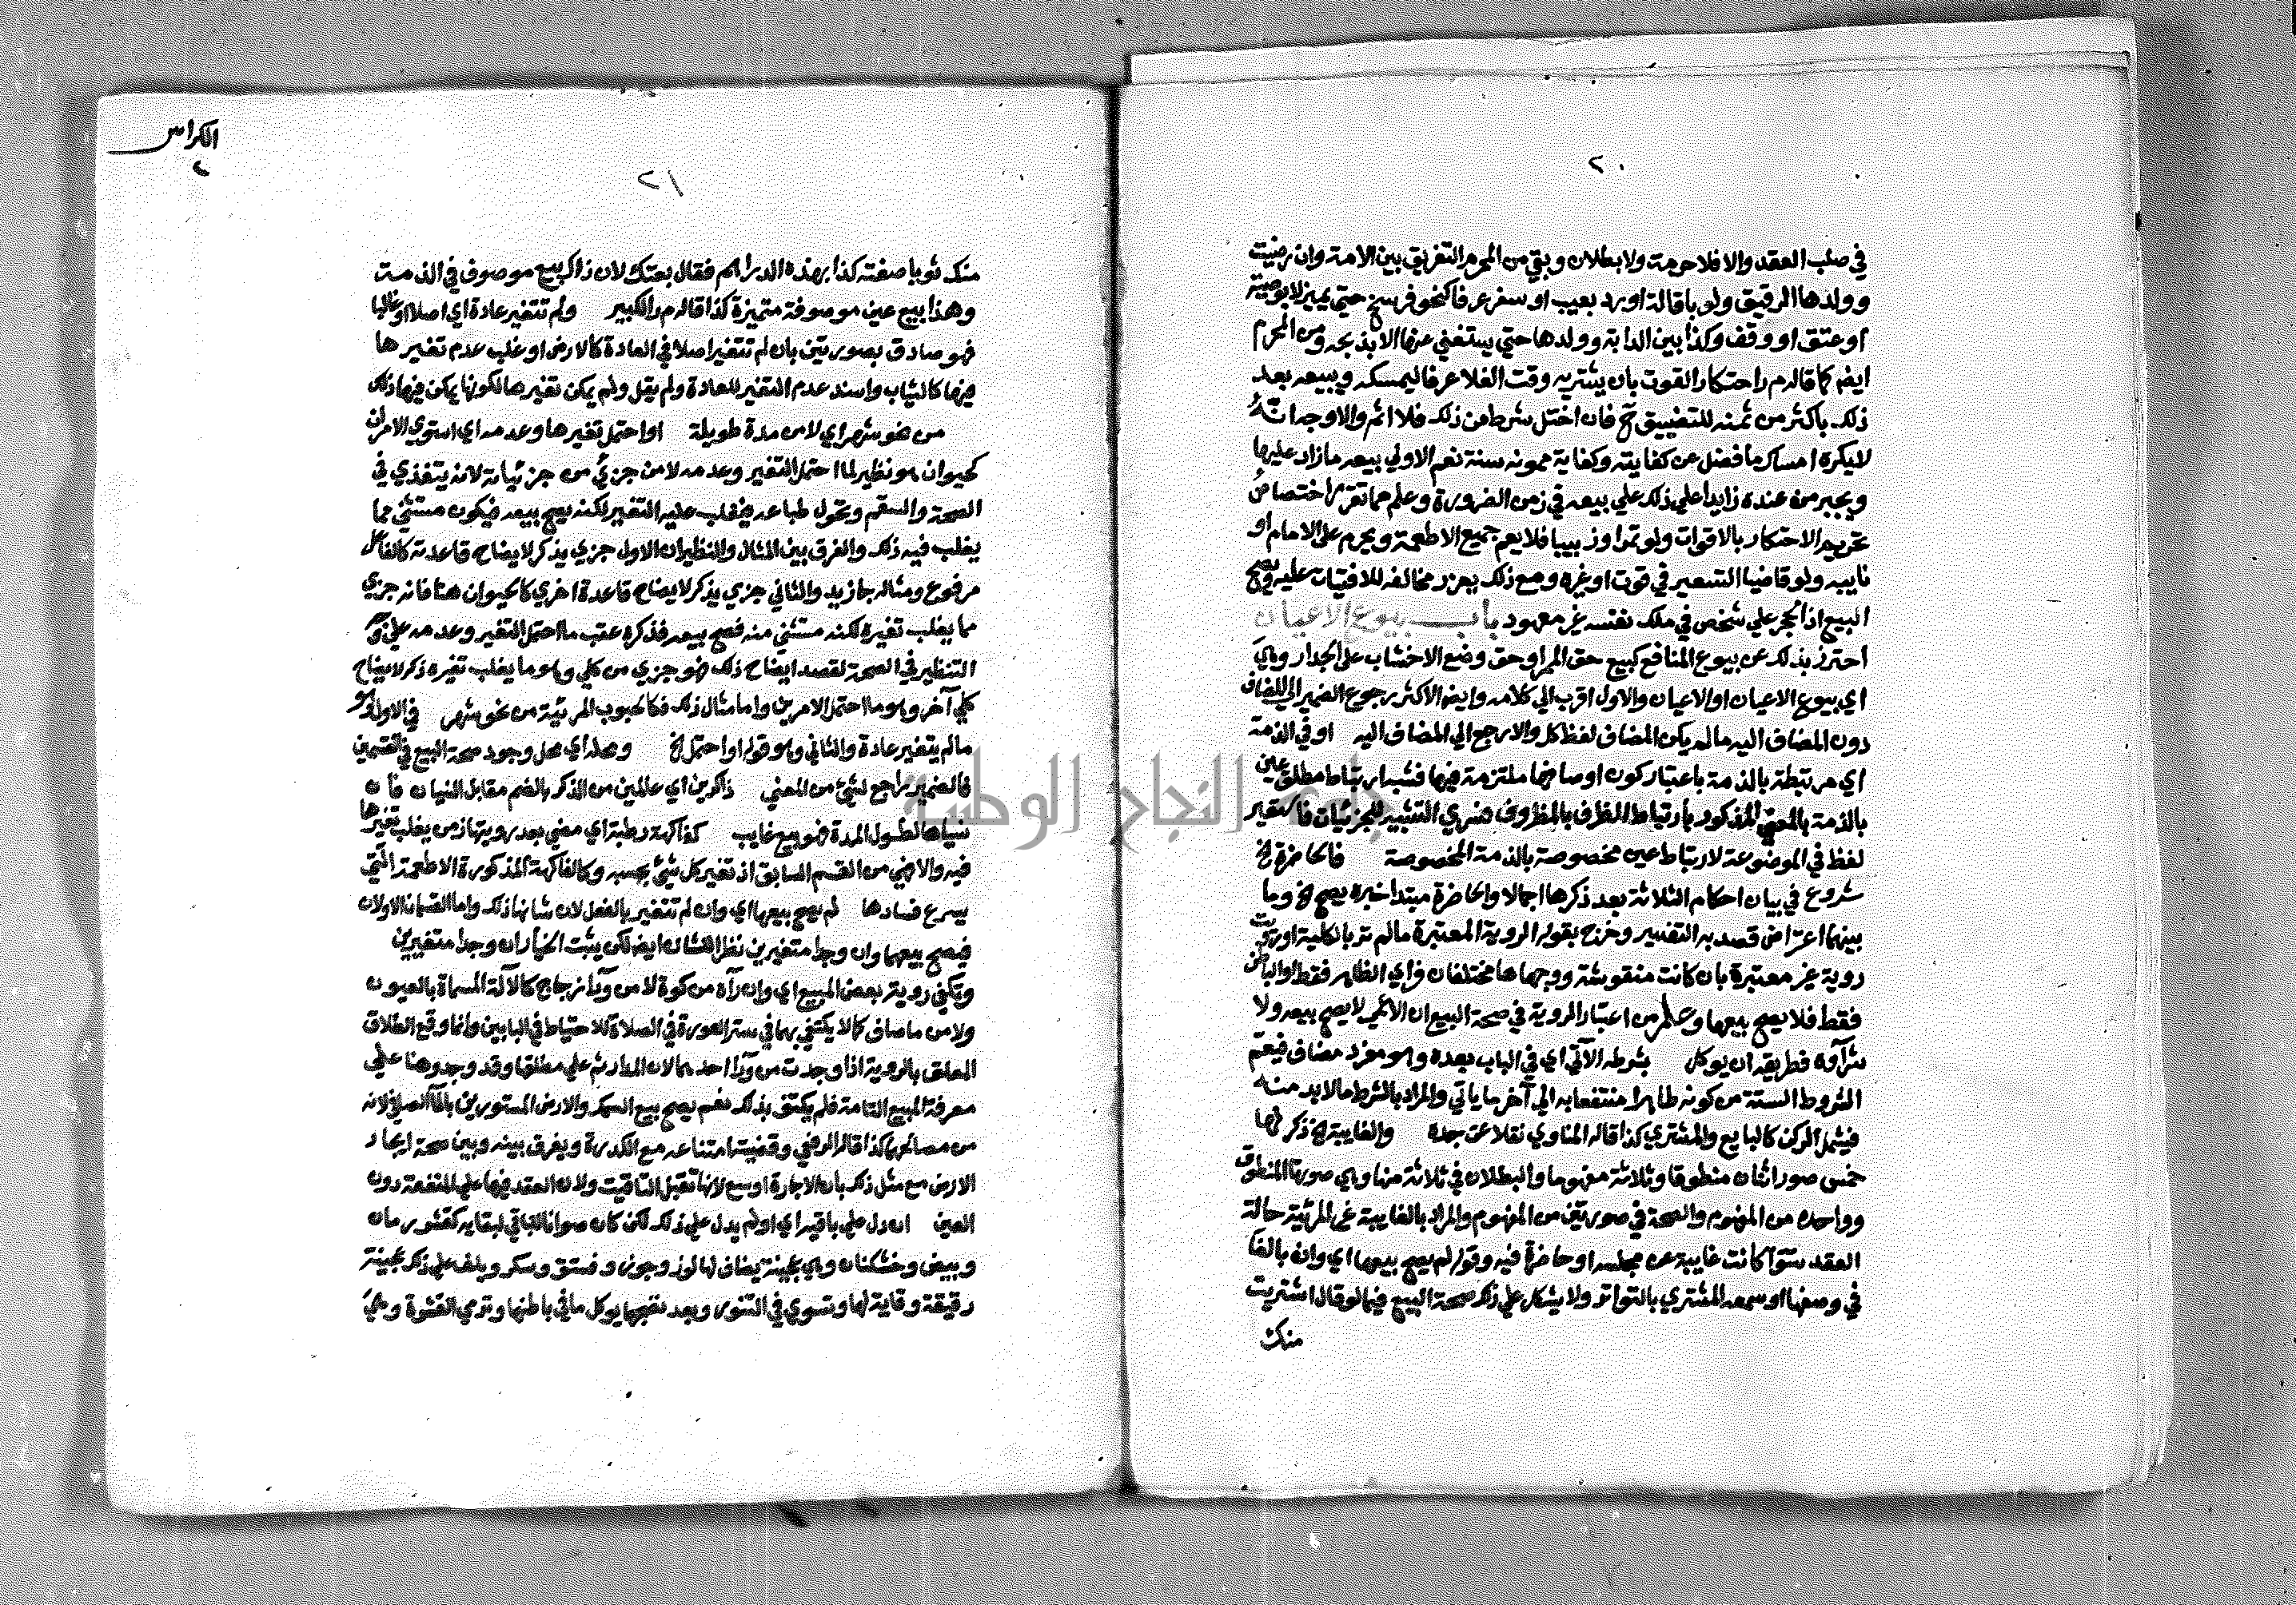 ٢٠
في صلب العقد والا فلا حرمة ولا بطلان وبقي من المحرم التفريق بين الامة وان رضيت
وولدها الرقيق ولو باقالة او رد بعيب او سفر عرفا كنحو فرسخ حتى يميز لا بوصية
او عتق او وقف وكذا بين الدابة وولدها حتي يستغني عنها الا بذبحه ومن المحرم
ايضا كما قاله م ر احتكار القوت بان يشتريه وقت الغلا عرفا ليمسكه ويبيعه بعد
ذلك باكثر من ثمنه للتضييق ح فان اختل شرط من ذلك فلا اثم والاوجه انه
لايكره امساك ما فضل عن كفايته وكفاية ممونه سنة نعم الاولي بيعه ما زاد عليها
ويجبر من عنده زايدا علي ذلك علي بيعه في زمن الضرورة وعلم مما تقرر اختصاص
تحريم الاحتكار بالاقوات ولو تمرا وزبيبا فلا يعم جميع الاطعمة ويحرم على الامام او
نايبه ولو قاضيا التسعير في قوت او غيره ومع ذلك يعزر مخالفه للافتيات عليه ويصح
البيع اذ الحجر علي شخص في ملك نفسه غير معهود باب بيوع الاعيان
احترز بذلك عن بيوع المنافع كبيع حق الممر او حق وضع الاخشاب على الجدار وهي
اي بيوع الاعيان او الاعيان والاول اقرب الي كلامه وايضا الاكثر رجوع الضمير الي المضاف
دون المضاف اليه ما لم يكن المضاف لفظ كل والا رجع الي المضاف اليه او في الذمة
اي مرتبطة بالذمة باعتبار كون اوصافها ملتزمة فيها فشبه ارتباط مطلق عين
بالذمة بالمعني المذكور بارتباط الظرف بالمظروف فسري التشبيه للجزئيات فاستعير
لفظ في الموضوعة لارتباط عين مخصوصة بالذمة المخصوصة فالحاضرة الخ
شروع في بيان احكام الثلاثة بعد ذكرها اجمالا والحاضرة مبتدا خبره يصح الخ وما
بينهما اعتراض قصد به التفسير وخرج بقوله الروية المعتبرة ما لم تر بالكلية او رئيت
روية غير معتبرة بان كانت منقوشة ووجهاها مختلفان وراي الظاهر فقط او الباطن
فقط فلا يصح بيعها وعلم من اعتبار الروية في صحة البيع ان الاعمي لا يصح بيعه ولا
شراؤه فطريقه ان يوكل بشرطه الآتي اي في الباب بعده وهو مفرد مضاف فيعم
الشروط الستة من كونه طاهرا منتفعا به الي آخر ما ياتي والمراد بالشرط ما لا بد منه
فيشمل الركن كالبايع والمشتري كذا قاله المناوي نقلا عن جده والغايبة الخ ذكر لها
خمس صور اثنان منطوقا وثلاثة مفهوما والبطلان في ثلاثة منها وهي صورتا المنطوق
وواحده من المفهوم والصحة في صورتين من المفهوم والمراد بالغايبة غير المرئية حالة
العقد سوآ كانت غايبة عن مجلسه او حاضرة فيه وقوله لم يصح بيعها اي وان بالغا
في وصفها او سمعه المشتري بالتواتر ولا يشكل علي ذلك صحة البيع فيما لو قال اشتريت
منك
الكراس
٢
٢١
منك ثوبا صفته كذا بهذه الدراهم فقال بعتك لان ذاك بيع موصوف في الذمة
وهذا بيع عين موصوفة متميزة كذا قاله م ر الكبير ولم تتغير عادة اي اصلا او غالبا
فهو صادق بصورتين بان لم تتغير اصلا في العادة كالارض او غلب عدم تغيرها
فيها كالثياب واسند عدم التغير للعادة ولم يقل ولم يمكن تغيرها لكونها يمكن فيها ذلك
من نحو شهر اي لا من مدة طويلة او احتمل تغيرها وعدمه اي استوي الامران
كحيوان هو نظير لما احتمل التغير وعدمه لا من جزئي من جزئياته لانه يتغذي في
الصحة والسقم وتحول طباعه فيغلب عليه التغير لكنه يصح بيعه فيكون مستثني مما
يغلب فيه ذلك والفرق بين المثال والنظير ان الاول جزي يذكر لايضاح قاعدته كالفاعل
مرفوع ومثاله جا زيد والثاني جزي يذكر لايضاح قاعدة اخري كالحيوان هنا فانه جزي
مما يغلب تغيره لكنه مستثني منه فصح بيعه فذكره عقب ما احتمل التغير وعدمه علي وجه
التنظير في الصحة لقصد ايضاح ذلك فهو جزي من كلي وهو ما يغلب تغيره ذكر لايضاح
كلي آخر وهو ما احتمل الامرين واما مثال ذلك فكالحبوب المرئية من نحو شهر في الاول وهو
ما لم يتغير عادة والثاني وهو قوله او احتمل الخ ومحله اي محل وجود صحة البيع في القسمين
فالضمير راجع لشئ من المعني ذاكرين اي عالمين من الذكر بالضم مقابل النسيان فان
نسياها لطول المدة فهو بيع غايب كفاكهة رطبة اي مضي بعد رويتها زمن يغلب تغيرها
فيه والا فهي من القسم السابق اذ تغير كل شئ بحسبه وكالفاكهة المذكورة الاطعمة التي
يسرع فسادها لم يصح بيعها اي وان لم تتغير بالفعل لان شانها ذلك واما القسمان الاولان
فيصح بيعهما وان وجدا متغيرين نظرا للشان ايضا لكن يثبت الخيار ان وجدا متغيرين
وتكفي روية بعض المبيع اي وان رآه من كوة لا من ورآ زجاج كالآلة المسماة بالعيون
ولا من ما صاف كما لا يكتفي بهما في ستر العورة في الصلاة للاحتياط في البابين وانما وقع الطلاق
المعلق بالروية اذا وجدت من ورآ احدهما لان المدار ثم علي مطلقها وقد وجد وهنا علي
معرفة المبيع التامة فلم يكتف بذلك نعم يصح بيع السمك والارض المستورين بالمآ الصافي لانه
من مصالحهما كذا قاله الرافعي وقضيته امتناعه مع الكدرة ويفرق بينه وبين صحة ايجار
الارض مع مثل ذلك بان الاجارة اوسع لانها تقبل التاقيت ولان العقد فيها علي المنفعة دون
العين ان دل علي باقيه اي او لم يدل علي ذلك لكن كان صوانا للباقي لبقايه كقشور رمان
وبيض وخشكنان وهي عجينة يضاف لها لوز وجوز وفستق وسكر ويلف علي ذلك عجينة
رقيقة وقاية لها وتسوي في التنور وبعد نضجها يوكل ما في باطنها وترمي القشرة وهي
جامعة النجاح الوطنية